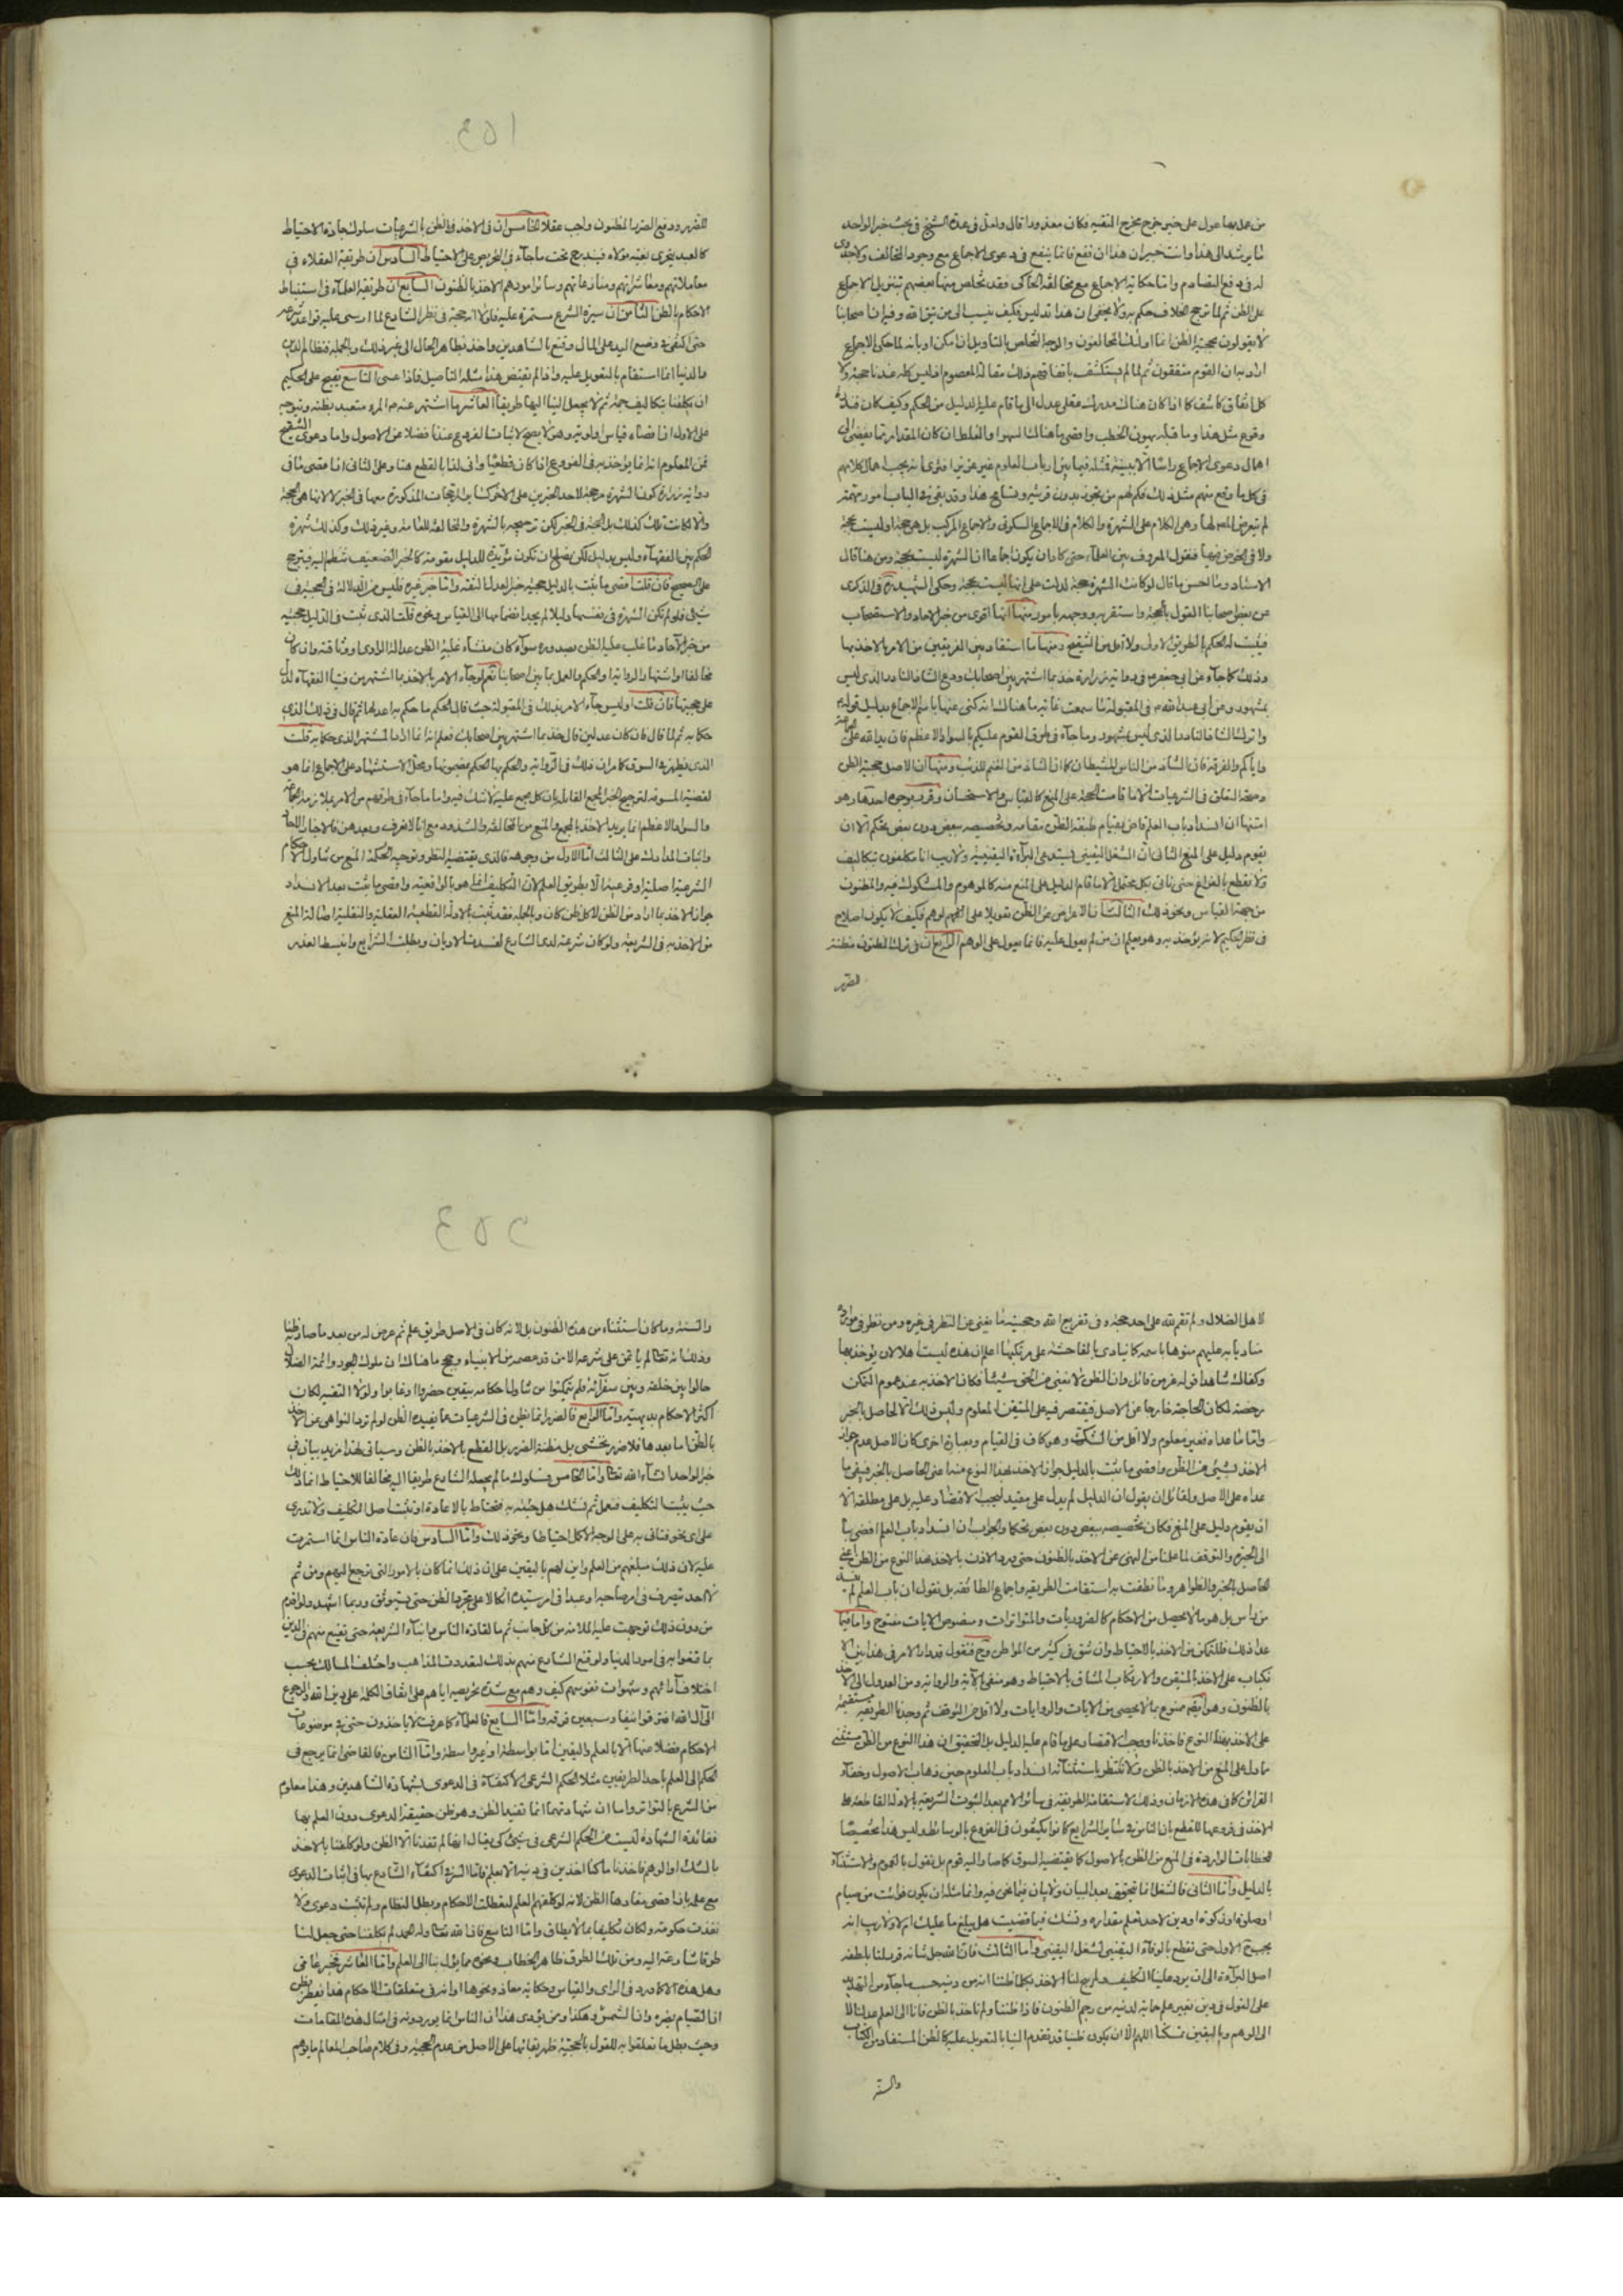 من عمل بها عول على خبر خرج مخرج التقية فكان معذورا قال وامثل في عدة الشيخ في بحث خبر الواحد
ما يرشد الى هذا وانت خبير ان هذا ان نفع فانما ينفع في دعوى الاجماع مع وجود المخالف ولا جدوى
له في دفع التصادم واما حكاية الاجماع مع مخالفة الحاكي فقد تخلص منها بعضهم بتنزيل الاجماع
على الظن ثم لما ترجح الخلاف حكم به ولا يخفى ان هذا تدليس فكيف ينسب الى من يتق الله وفيه ان اصحابنا
لا يقولون بحجية الظن انما اولئك المخالفون والوجه التخلص بالتاويل ان امكن او بانه لما حكى الاجماع
اراد به ان القوم متفقون ثم لما لم يستكشف باتفاقهم ذلك مقالة المعصوم اذ ليس كله عندنا حجة ولا
كل اتفاق كاشف كما اذا كان هناك مدرك عقلي عدل الى ما قام عليه الدليل من الحكم وكيف كان فقلة
وقوع مثل هذا وما قبله يهون الخطب واقصى ما هنالك السهو والغلط ان كان المقدار مما يفضي الى
اهمال دعوى الاجماع راسا الا ببينة فمثله فيما بين ارباب العلوم غير عزيز افترى انه يجب اهمال كلامهم
في كل ما وقع منهم مثل ذلك فكم لهم من تجوز بدون قرينة وتسامح هذا وقد بقي في الباب امور مهمة
لم يتعرض المص لها وهي الكلام على الشهرة والكلام في الاجماع السكوتي والاجماع المركب بل هي حجة او ليست بحجة
ولا في الخوض فيها فنقول المعروف بين العلماء حتى كاد ان يكون اجماعا ان الشهرة ليست بحجة ومن هنا قال
الاستاد وما احسن ما قال لو كانت الشهرة حجة لدلت على انها ليست بحجة وحكى الشهيد ره في الذكرى
عن بعض اصحابنا القول بالحجة واستقربه ووجهه بامور منها انها اقوى من خبر الاحاد والاستصحاب
فيثبت له الحكم بالطريق الاولى ولا اقل من التنقيح ومنها ما استفاد بين الفريقين من الامر بالاخذ بها
وذلك كما جاء عن ابي جعفر ع في رواية زرارة خذ بما اشتهر بين اصحابك ودع الشاذ النادر الذي ليس
بمشهور وعن ابي عبد الله ع في المقبولة
واترك الشاذ النادر الذي ليس بمشهور وما جاء في طرق القوم عليكم بالسواد الاعظم فان يد الله على الجماعة
واياكم والفرقة فان الشاذ من الناس للشيطان كما ان الشاذ من الغنم للذئب ومنها ان الاصل حجية الظن
وصحة التعلق في الشرعيات الا ما قامت الحجة على المنع كالقياس والاستحسان وقرب بوجوه احدها وهو
امتنها ان انسداد باب العلم قاض بقيام طبقة الظن مقامه وتخصيصه ببعض دون بعض تحكم الا ان
يقوم دليل على المنع الثاني ان الشغل اليقيني يستدعي البراءة اليقينية ولا ريب انا مكلفون بتكاليف
ولا نقطع بالفراغ حتى ناتي بكل محتمل الا ما قام الدليل على المنع منه كالموهوم والمشكوك فيه والمظنون
من جهة القياس ونحو ذلك الثالث ان الاعراض عن الظن تعويلا على الوهم فكيف لا يكون اصلاح
في نظر الحكيم لا من يؤخذ به وهو يعلم ان من لم يعول عليه فانما يعول على الوهم الرابع ان في ترك المظنون مظنة
الضرر
٤٥١
للضرر ودفع الضرر المظنون واجب عقلا الخامس ان في الاخذ في الظن بالشرعيات سلوك جادة الاحتياط
كالعبد يتحرى بغية مولاه فيندرج تحت ما جاء في التحريص على الاحتياط السادس ان طريقة العقلاء في
معاملاتهم ومعاشراتهم ومنازعاتهم وسائر امورهم الاخذ بالظنون السابع ان طريقة العلماء في استنباط
الاحكام بالظن الثامن ان سيرة الشرع مستمرة عليه فلولا انه حجة في نظر الشارع لما ارسى عليه قواعد شرعه
حتى اكتفى في وضع اليد على المال وقنع بالشاهدين واخذ بظاهر الحال الى غير ذلك وبالجملة فنظام الدين
والدنيا انما استقام بالتعويل عليه واذا لم يقتض هذا مثله التاصيل فاذا عسى التاسع يقبح على الحكيم
ان يكلفنا بتكاليف جمة ثم لا يجعل لنا اليها طريقا العاشر ما اشتهر عنه ص المرء متعبد بظنه ويتوجه
على الاول انه قضاء قياس اولوية وهو لا يصح لاثبات الفروع عندنا فضلا عن الاصول واما دعوى التنقيح
فمن المعلوم انه انما يؤخذ به في الفروع اذا كان قطعيا وانى لنا بالقطع هنا وعلى الثاني ان اقصى ما في
رواية زرارة كون الشهرة مرجحة لاحد الخبرين على الاخر كسائر المرجحات المذكورة معها في الخبر لا انها هي الحجة
والا لكانت تلك كذلك بل الحجة هي الخبر لكن ترجيحه بالشهرة والمخالفة للعامة وغير ذلك وكذلك شهرة
الحكم بين الفقهاء وليس بدليل لكن يصلح ان تكون مؤيدة للدليل مقومة كالخبر الضعيف تنظم اليه فيترجح
على الصحيح فان قلت اقصى ما يثبت بالدليل حجية خبر العدل الثقة واما خبر غيره فليس من الدلالة في الحجية في
شيء فلو لم تكن الشهرة في نفسها دليلا لم يجد انضمامها الى القياس ونحوه قلت الذي يثبت في الدليل حجية
من خبر الآحاد ما غلب عليه الظن بصدوره سواء كان منشاء غلبة الظن عدالة الراوي او وثاقته وان كان
مخالفا او اشتهار الرواية او الحكم والعمل بما بين اصحابنا نعم لو جاء الامر بالاخذ بما اشتهر من فتيا الفقهاء لدل
على حجيتها فان قلت اوليس جاء الامر بذلك في المقبولة حيث قال الحكم ما حكم به اعدلهما ثم قال في ذلك الذي
حكما به ثم لما قال فان كان عدلين قال خذ بما اشتهر بين اصحابك فعلم انه انما اراد المشتهر الذي حكما به قلت
الذي يظهر في السوق كما مر ان ذلك في الرواية والحكم بها الحكم بمضمونها ومحل الاستشهاد على الاجماع انما هو
لقضية المسوقة لترجيح الخبر المجمع القابل بان كل مجمع عليه لا شك فيه واما ما جاء في طرقهم من الامر بملازمة الجماعة
والسواد الاعظم انما يريد الاخذ بالمجمع والمنع من المخالفة والشذوذ
واثبات المدارك على الثالث اما الاول من وجوهه فالذي يقتضيه النظر وتوجبه الحكمة المنع من تناول الاحكام
الشرعية اصلية او فرعية الا بطريق العلم لان التكليف انما هو بالواقعية واقصى ما يثبت بعد الانسداد
جواز الاخذ بما اراد من الظن لا كل ظن كان وبالجملة فقد ثبت بالادلة القطعية العقلية والنقلية اصالة المنع
من الاخذ به في الشريعة ولو كان شرعة لدى الشارع لفسدت الاديان وبطلت الشرايع وانبسط العذر
لاهل الضلال ولم تقم لله على احد حجة
مناديا به عليهم
وكفاك شاهدا قوله عز من قائل وان الظن لا يغني من الحق شيئا فكان الاخذ به عند عموم التمكن
رخصة لمكان الحاجة خارجا عن الاصل فيقتصر فيه على المتيقن المعلوم وليس ذلك الا الحاصل بالخبر
واما ما عداه فغير معلوم ولا اقل من الشك وهو كاف في المقام وبعبارة اخرى كان الاصل عدم جواز
الاخذ بشيء من الظن واقصى ما يثبت بالدليل جواز الاخذ بهذا النوع منه اعني الحاصل بالخبر فيبقى ما
عداه على الاصل ولقائل ان يقول ان الدليل لم يدل على مقيد ليجب الاقتصار عليه بل على مطلقه الا
ان يقوم دليل على المنع فكان تخصيصه ببعض دون بعض تحكما والجواب ان انسداد باب العلم افضى بنا
الى الحيرة والتوقف لما علمنا من النهي عن الاخذ بالظنون حتى ورد الاذن بالاخذ بهذا النوع من الظن اعني
الحاصل بالخبر والظواهر وما نطقت به استقامت الطريقة واجماع الطائفة بل نقول ان باب العلم لم ينسد
من راس بل هو ما لا يحصل من الاحكام كالضروريات والمتواترات ومنصوص الايات مفتوح واما فيما
عدا ذلك فللتمكن من الاخذ بالاحتياط وان شق في كثير من المواطن وح فنقول قد دار الامر في هذا بين الا
نكباب على الاخذ بالمتيقن والارتكاب المشاق بالاحتياط وهو منفي بالآية والرواية ومن العدول الى الاخذ
بالظنون وهو ايضا ممنوع بما لا يحصى من الايات والروايات ولا اقل من التوقف ثم وجدنا الطريقة مستقيمة
على الاخذ بهذا النوع فاخذنا ووجب الاقتصار على ما قام عليه الدليل بل التحقيق ان هذا النوع من الظن مستثنى
مما دل على المنع من الاخذ بالظن ولا تنتظر باستثنائه انسداد باب العلوم حين ذهاب الاصول وخفاء
القرائن كما في هذه الازمان وذلك لاستقامة الطريقة في سائر الامم بعد ثبوت الشريعة بالادلة القاطعة على
الاخذ في فروعها للقطع بان الناس في سائر الشرايع كانوا يكتفون في الفروع بالوسائط وليس هذا تخصيصا
للخطابات الواردة في المنع من الظن بالاصول كما يقتضيه السوق كما صار اليه قوم بل نقول بالعموم والاستثناء
بالدليل واما الثاني فالشغل انما يتحقق بعد البيان ولا بيان فيما نحن فيه وانما مثله ان يكون فوائت من صيام
او صلوة او زكوة او دين لاحد تعلم مقداره وتشك فيما قضيت هل يبلغ ما عليك ام لا ولا ريب انه
يجب ح الاول حتى تقطع بالوفاء اليقيني لشغل اليقيني واما الثالث فان الله جل شانه قرر لنا بلطفه
اصل البراءة الى ان يرد علينا التكليف ولم يبح لنا الاخذ بكل ما ظننا انه من دينه حيث ما جاء من التهديد
على القول في دين بغير علم حماية لدينه من رجم الظنون فاذا ظننا ولم ناخذ بالظن فانا الى العلم عدلنا لا
الى الوهم وباليقين تمسكنا اللهم الا ان يكون ظنيا قد تقدم الينا بالتعويل عليه كالظن المستفاد من الكتاب
والسنة
٤٥٢
والسنة وما كان استثناه من هذه الظنون بل لانه كان في الاصل طريق علم ثم عرض له من بعد ما صار ظنيا
وذلك انه تعالى لم يأتمن على شرعه الا من قد عصمه من الانبياء وحجج ما هنالك ان ملوك الجور وائمة الضلال
حالوا بين خلقه وبين سفرائه فلم يتمكنوا من تناول احكامه بيقين حضروا او غابوا ولولا التقية لكان
اكثر الاحكام بديهية واما الرابع فالضرر انما يظن في الشرعيات بما يفيده الظن لو لم ترد النواهي عن الاخذ
بالظن اما بعدها فلا ضرر يخشى بل مظنة الضرر بل القطع بالاخذ بالظن وسياتي لهذا مزيد بيان في
خبر الواحد انشاء الله تعالى واما الخامس فسلوك ما لم يجعله الشارع طريقا اليه مخالفا للاحتياط انما ذلك
حيث يثبت التكليف فتعمل ثم تشك هل جئت به فتحتاط بالاعادة او يثبت اصل التكليف ولا تدري
على اي نحو فتاتي به على الوجه الاكمل احتياطا ونحو ذلك واما السادس فان عادة الناس انما استمرت
عليه لان ذلك مبلغهم من العلم واين لهم باليقين على ان ذلك انما كان بالامور التي ترجع اليهم ومن ثم
لا احد يتصرف في امر صاحبه او عبد في امر سيده اتكالا على مجرد الظن حتى يستوثق وربما استشهد ولو اقدم
من دون ذلك توجهت عليه الملامة من كل جانب ثم ما لعادة الناس وما بناء الشريعة حتى يقنع منهم في الدين
بما قنعوا به في امور الدنيا ولو قنع الشارع منهم بذلك لتعددت المذاهب واختلفت المسالك بحسب
اختلاف آرائهم وشهوات نفوسهم كيف وهم مع شدة تحريصه اياهم على اتفاق الكلمة على دين الله والرجوع
الى آل الله افترقوا نيفا وسبعين فرقة واما السابع فالعلماء كما عرفت لا ياخذون حتى في موضوعات
الاحكام فضلا عنها الا بالعلم واليقين اما بواسطة او بغير واسطة واما الثامن فالقاضي انما يرجع في
الحكم الى العلم باحد الطريقين مثلا الحكم الشرعي الاكتفاء في الدعوى بشهادة الشاهدين وهذا معلوم
من الشرع بالتواتر واما ان شهادتهما انما تفيد الظن وهو ظن حقيقة الدعوى دون العلم بها
ففائدة الشهادة ليست من الحكم الشرعي في شيء كي يقال انها لم تفدنا الا الظن ولو كلفنا بالاخذ
بالشك او الوهم فاخذنا ما كنا اخذين في دينه الا بعلم فاما السر في اكتفاء الشارع بها في اثبات الدعوى
مع علمه بان اقصى مفادها الظن لانه لو كلفهم العلم لتعطلت الاحكام وبطل النظام ولم تثبت دعوى ولا
نفذت حكومة ولكان تكليفا بما لا يطاق واما التاسع فان الله تعالى وله الحمد لم يكلفنا حتى جعل لنا
طرقا شارعة اليه ومن تلك الطرق ظاهر الخطاب ونحوه مما يئول بنا الى العلم واما العاشر فخبر عامي
وهل هذه الا كما ورد في الراي والقياس وحكاية معاذ ونحوها او انه في متعلقات الاحكام هذا يفطر بظن
ان الصيام يضره وان الشمس وهكذا ومن يؤدي هذا ان الناس انما يوردونه في امثال هذه المقامات
وحيث بطل ما تعلقوا به للقول بالحجية ظهر بقائها على الاصل من عدم الحجية وفي كلام صاحب المعالم ما يوهم